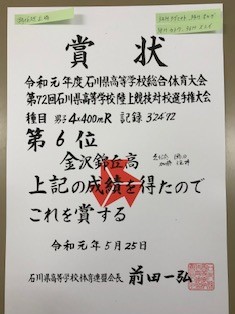 賞状
令和元年度石川県高等学校総合体育大会
第72回石川県高等学校陸上競技対校選手権大会
種目 男子4×400mR 記録 3'24"72
第6位
金沢錦丘高
上記の成績を得たので
これを賞する
令和元年5月25日
石川県高等学校体育連盟会長 前田一弘